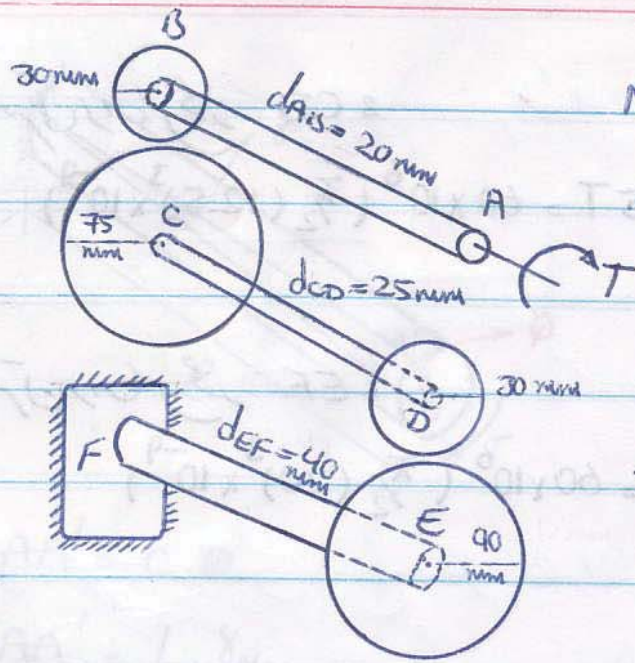 B
30mm
dAB = 20 mm
A
T
75 mm
C
dCD = 25 mm
30 mm
D
F
dEF = 40 mm
E
90 mm